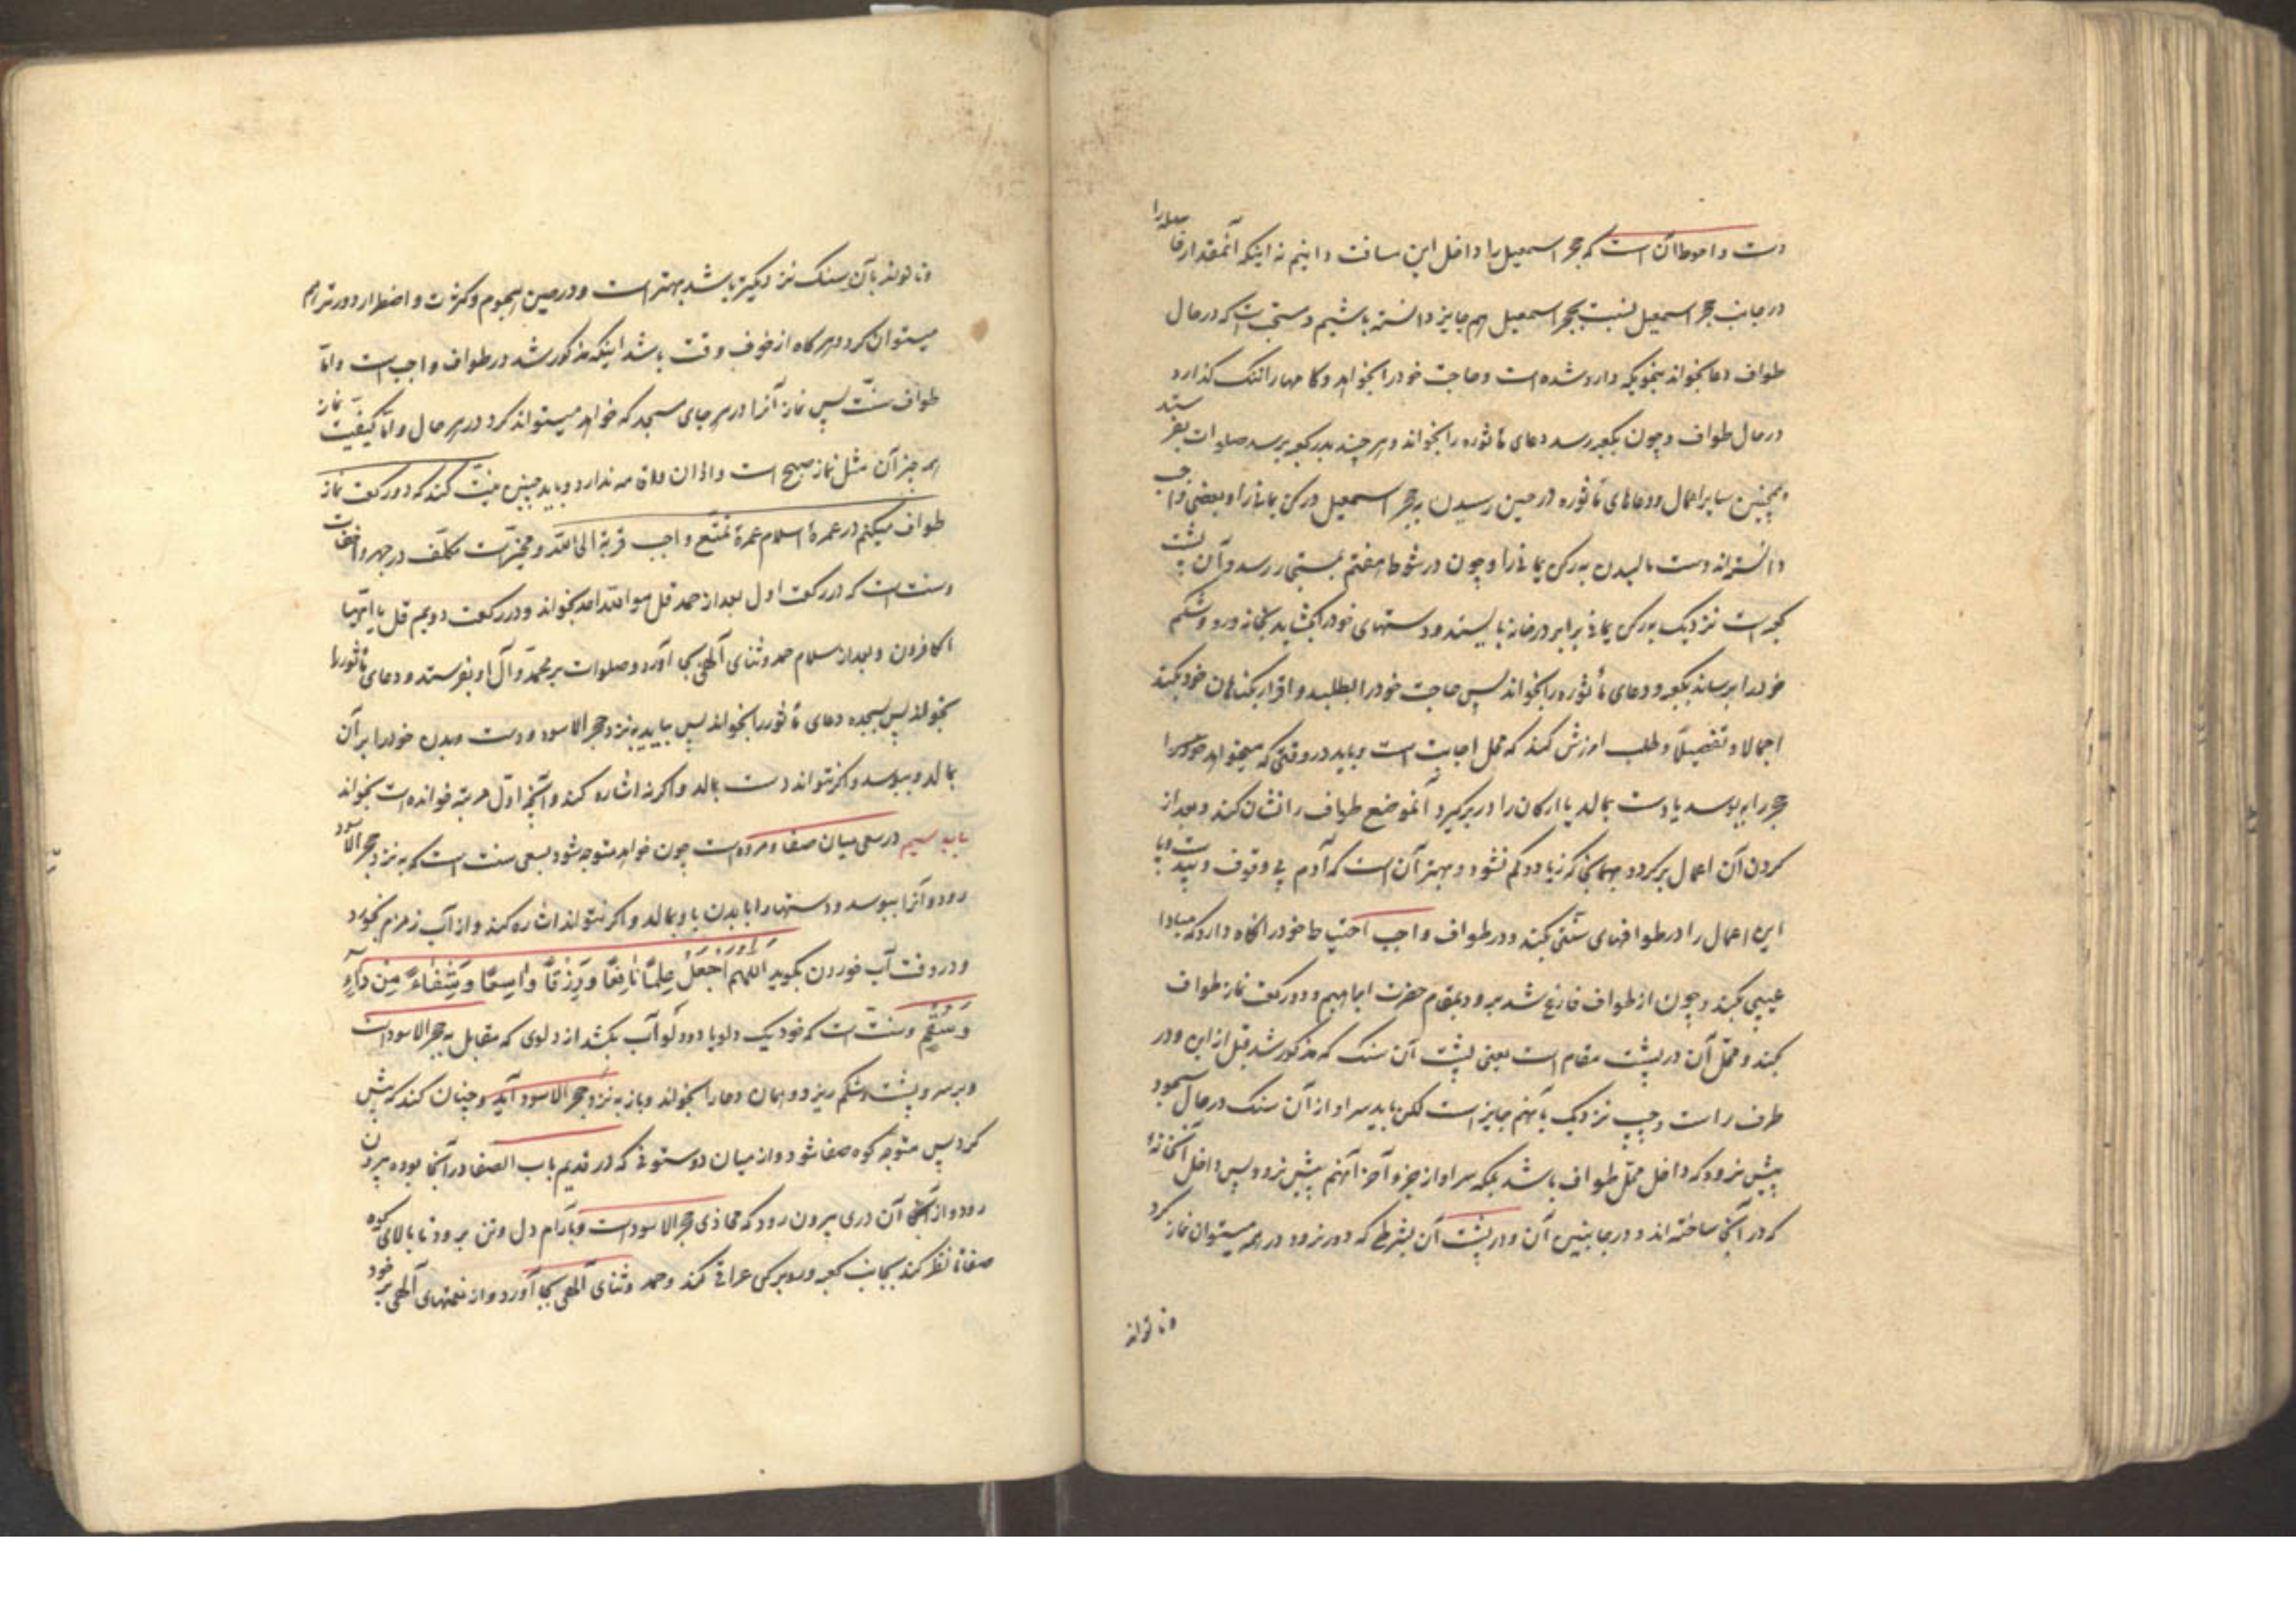 دست و احوط آن است که حجر اسمعیل را داخل این مسافت دانیم نه اینکه آنمقدار فاصله را
در جانب حجر اسمعیل نسبت بحجر اسمعیل هم جایز دانسته باشیم و سنتست که در حال
طواف دعا بخواند بنحویکه وارد شده است و حاجت خود را بخواهد و کامها را تنک کذارد
در حال طواف و چون بکعبه رسد دعای مأثوره را بخواند و هر چند بدر کعبه برسد صلوات بفرستد
و همچنین سایر اعمال و دعاهای مأثوره در حین رسیدن به حجر اسمعیل و رکن یمانی را و بعضی واجب
دانسته‌اند دست مالیدن به رکن یمانی را و چون در شوط هفتم بمستجار رسد و آن پشت
کعبه است نزدیک به رکن یمانی برابر در خانه بایستد و دستهای خود را بکشاید بخانه و رو و شکم
خود را برساند بکعبه و دعای مأثوره را بخواند پس حاجت خود را بطلبد و اقرار بکناهان خود بکند
اجمالا و تفصیلاً و طلب امرزش کند که محل اجابت است و باید در وقتی که میخواهد
حجر را ببوسد یا دست بمالد یا ارکان را در بر کیرد آنموضع طواف را نشان کند و بعد از
کردن آن اعمال بر کردد بهمانجا که زیاد و کم نشود و بهتر آن است که آدم بی وقوف
این اعمال را در طوافهای سنتی بکند و در طواف واجب احتیاط خود را نکاه دارد که مبادا
عیبی بکند و چون از طواف فارغ شد برود بمقام حضرت ابراهیم و دو رکعت نماز طواف
بکند و محل آن در پشت مقام است یعنی پشت آن سنک که مذکور شد قبل از این و در
طرف راست و چپ نزدیک بآنهم جایز است لکن باید سر او از آن سنک در حال سجود
پیش نرود که داخل محل طواف باشد بلکه سر او از جزو آخر آنهم پیش نرود پس داخل آنخانهٔ
که در آنجا ساخته‌اند و در جانبین آن و در پشت آن بشرطی که دور نرود در همه میتوان نماز کرد
و تا تواند
و تا تواند بآن سنک نزدیکتر باشد بهتر است و در حین هجوم و کثرت و اضطرار دورتر هم
میتوان کرد و هر کاه از خوف وقت باشد اینکه مذکور شد در طواف واجب است و اما
طواف سنت پس نماز آنرا در هر جای مسجد که خواهد میتواند کرد در هر حال و اما کیفیت نماز
همه چیز آن مثل نماز صبح است و اذان و اقامه ندارد و باید چنین نیت کند که دو رکعت نماز
طواف میکنم در عمرهٔ اسلام عمرهٔ تمتع واجب قربة الی الله و مخیر است مکلف در جهر و اخفات
و سنت است که در رکعت اول بعد از حمد قل هو الله احد بخواند و در رکعت دویم قل یا ایها
الکافرون و بعد از سلام حمد و ثنای آلهی بجا آورد و صلوات بر محمد و آل او بفرستد و دعای مأثور را
بخواند پس بسجده دعای مأثور را بخواند پس بیاید به نزد حجر الاسود و دست و بدن خود را بر آن
بمالد و ببوسد و اکر نتواند دست بمالد و اکر نه اشاره کند و آنچه اول مرتبه خوانده است بخواند
باب سیم در سعی میان صفا و مروه است چون خواهد متوجه شود بسعی سنت است که به نزد حجر الاسود
رود و آنرا ببوسد و دستها را با بدن باو بمالد و اکر نتواند اشاره کند و از آب زمزم بخورد
و در وقت آب خوردن بکوید اَللّهُمَّ اجْعَلْهُ عِلْمًا نافِعًا وَ رِزْقًا واسِعًا وَ شِفاءً مِنْ داءٍ
وَ سُقْمٍ و سنت است که خود یک دلو یا دو دلو آب بکشد از دلوی که مقابل به حجر الاسود است
و بر سر و پشت و شکم ریزد و همان دعا را بخواند و باز به نزد حجر الاسود آید و چنان کند که پیش
کرد پس متوجه کوه صفا شود و از میان دو ستونی که در قدیم باب الصفا در آنجا بوده بیرون
رود و از آن دری بیرون رود که محاذی حجر الاسود است و بآرام دل و تن برود تا بالای کوه
صفا تا نظر کند بجانب کعبه و رو برکن عراقی کند و حمد و ثنای آلهی بجا آورد و از نعمتهای آلهی بر خود